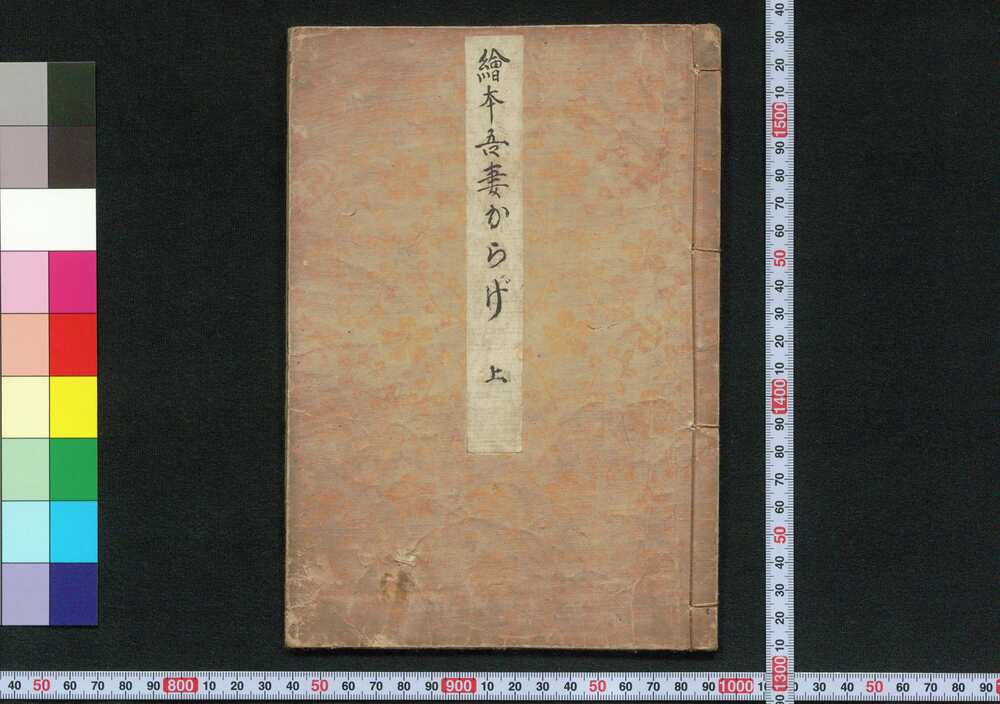 繪本吾妻からげ 上
40
30
20
10
1500
90
80
70
60
50
40
30
20
10
1400
90
80
70
60
50
40
30
20
10
1300
40 50 60 70 80 90 800 10 20 30 40 50 60 70 80 90 900 10 20 30 40 50 60 70 80 90 1000 10 20 30 40 50 60 70 80 90